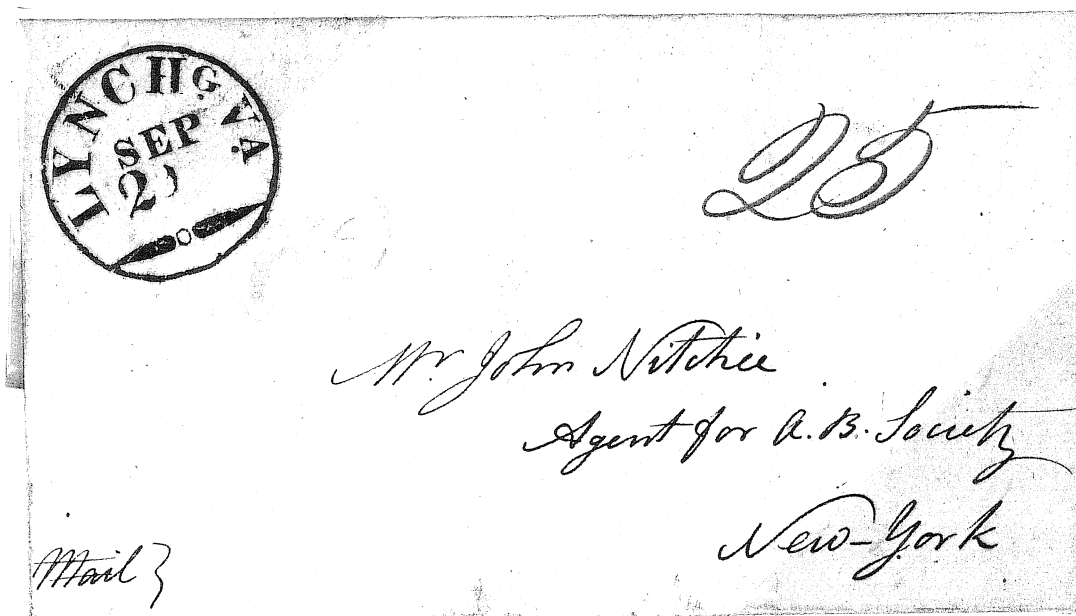 LYNCHG. VA.
SEP
25
Mr. John Nitchie
Agent for A. B. Society
New-York
Mail